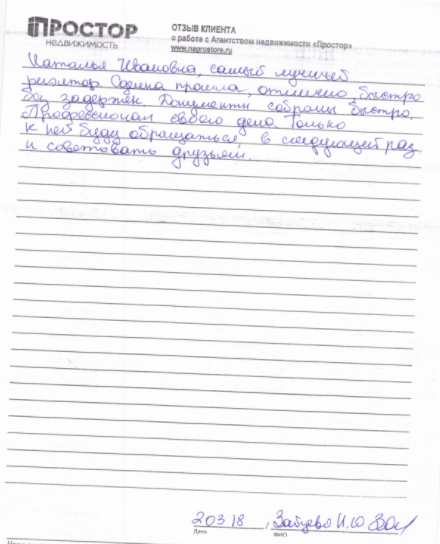 ПРОСТОР
НЕДВИЖИМОСТЬ
ОТЗЫВ КЛИЕНТА
о работе с Агентством недвижимости «Простор»
www.naprostore.ru
Наталья Ивановна, самый лучший
риэлтор. Сделка прошла, отлично быстро
без задержек. Документы собраны быстро.
Профессионал своего дела. Только
к ней буду обращаться в следующей раз
и советовать друзьям.
20 3 18
Дата
И.Ю
ФИО